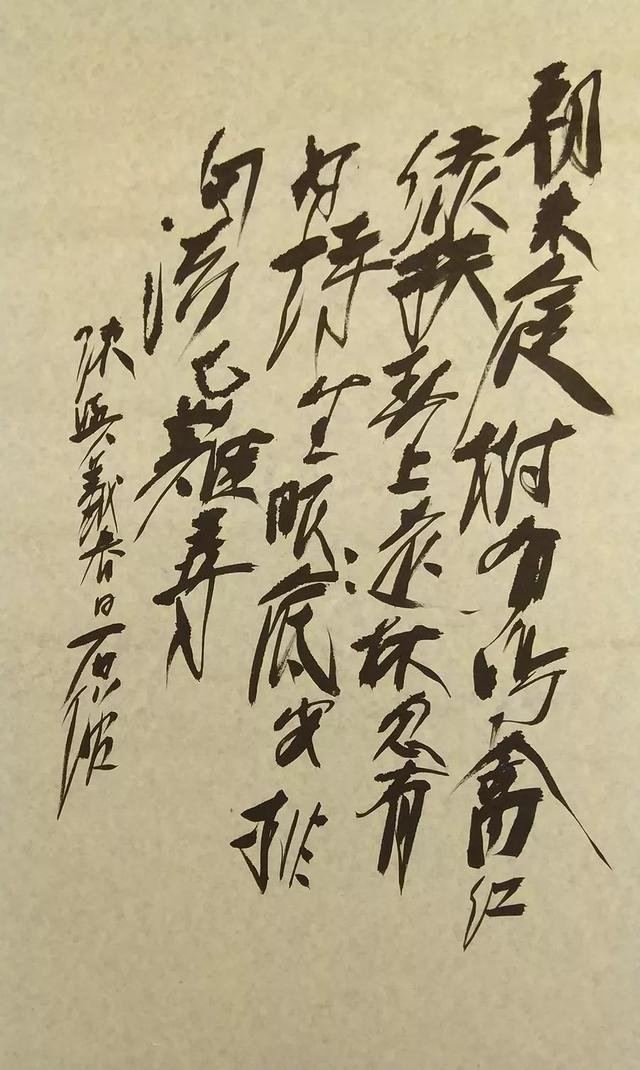 朝来庭树有鸣禽红
绿扶春上远林忽有
好诗生眼底安排
句法已難寻
陈與義春日